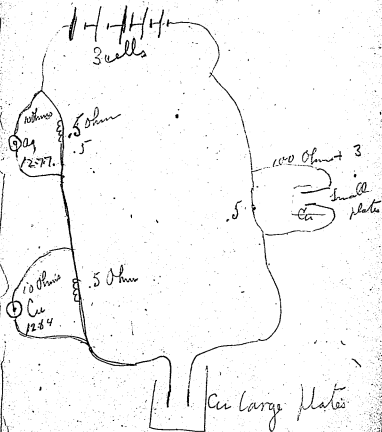 3 cells
10 ohms
.5 Ohm
.5
Ag
100 Ohms + 3
Small
plates
Cu
.5
10 Ohms
.5 Ohm
Cu
1284
Cu large plates